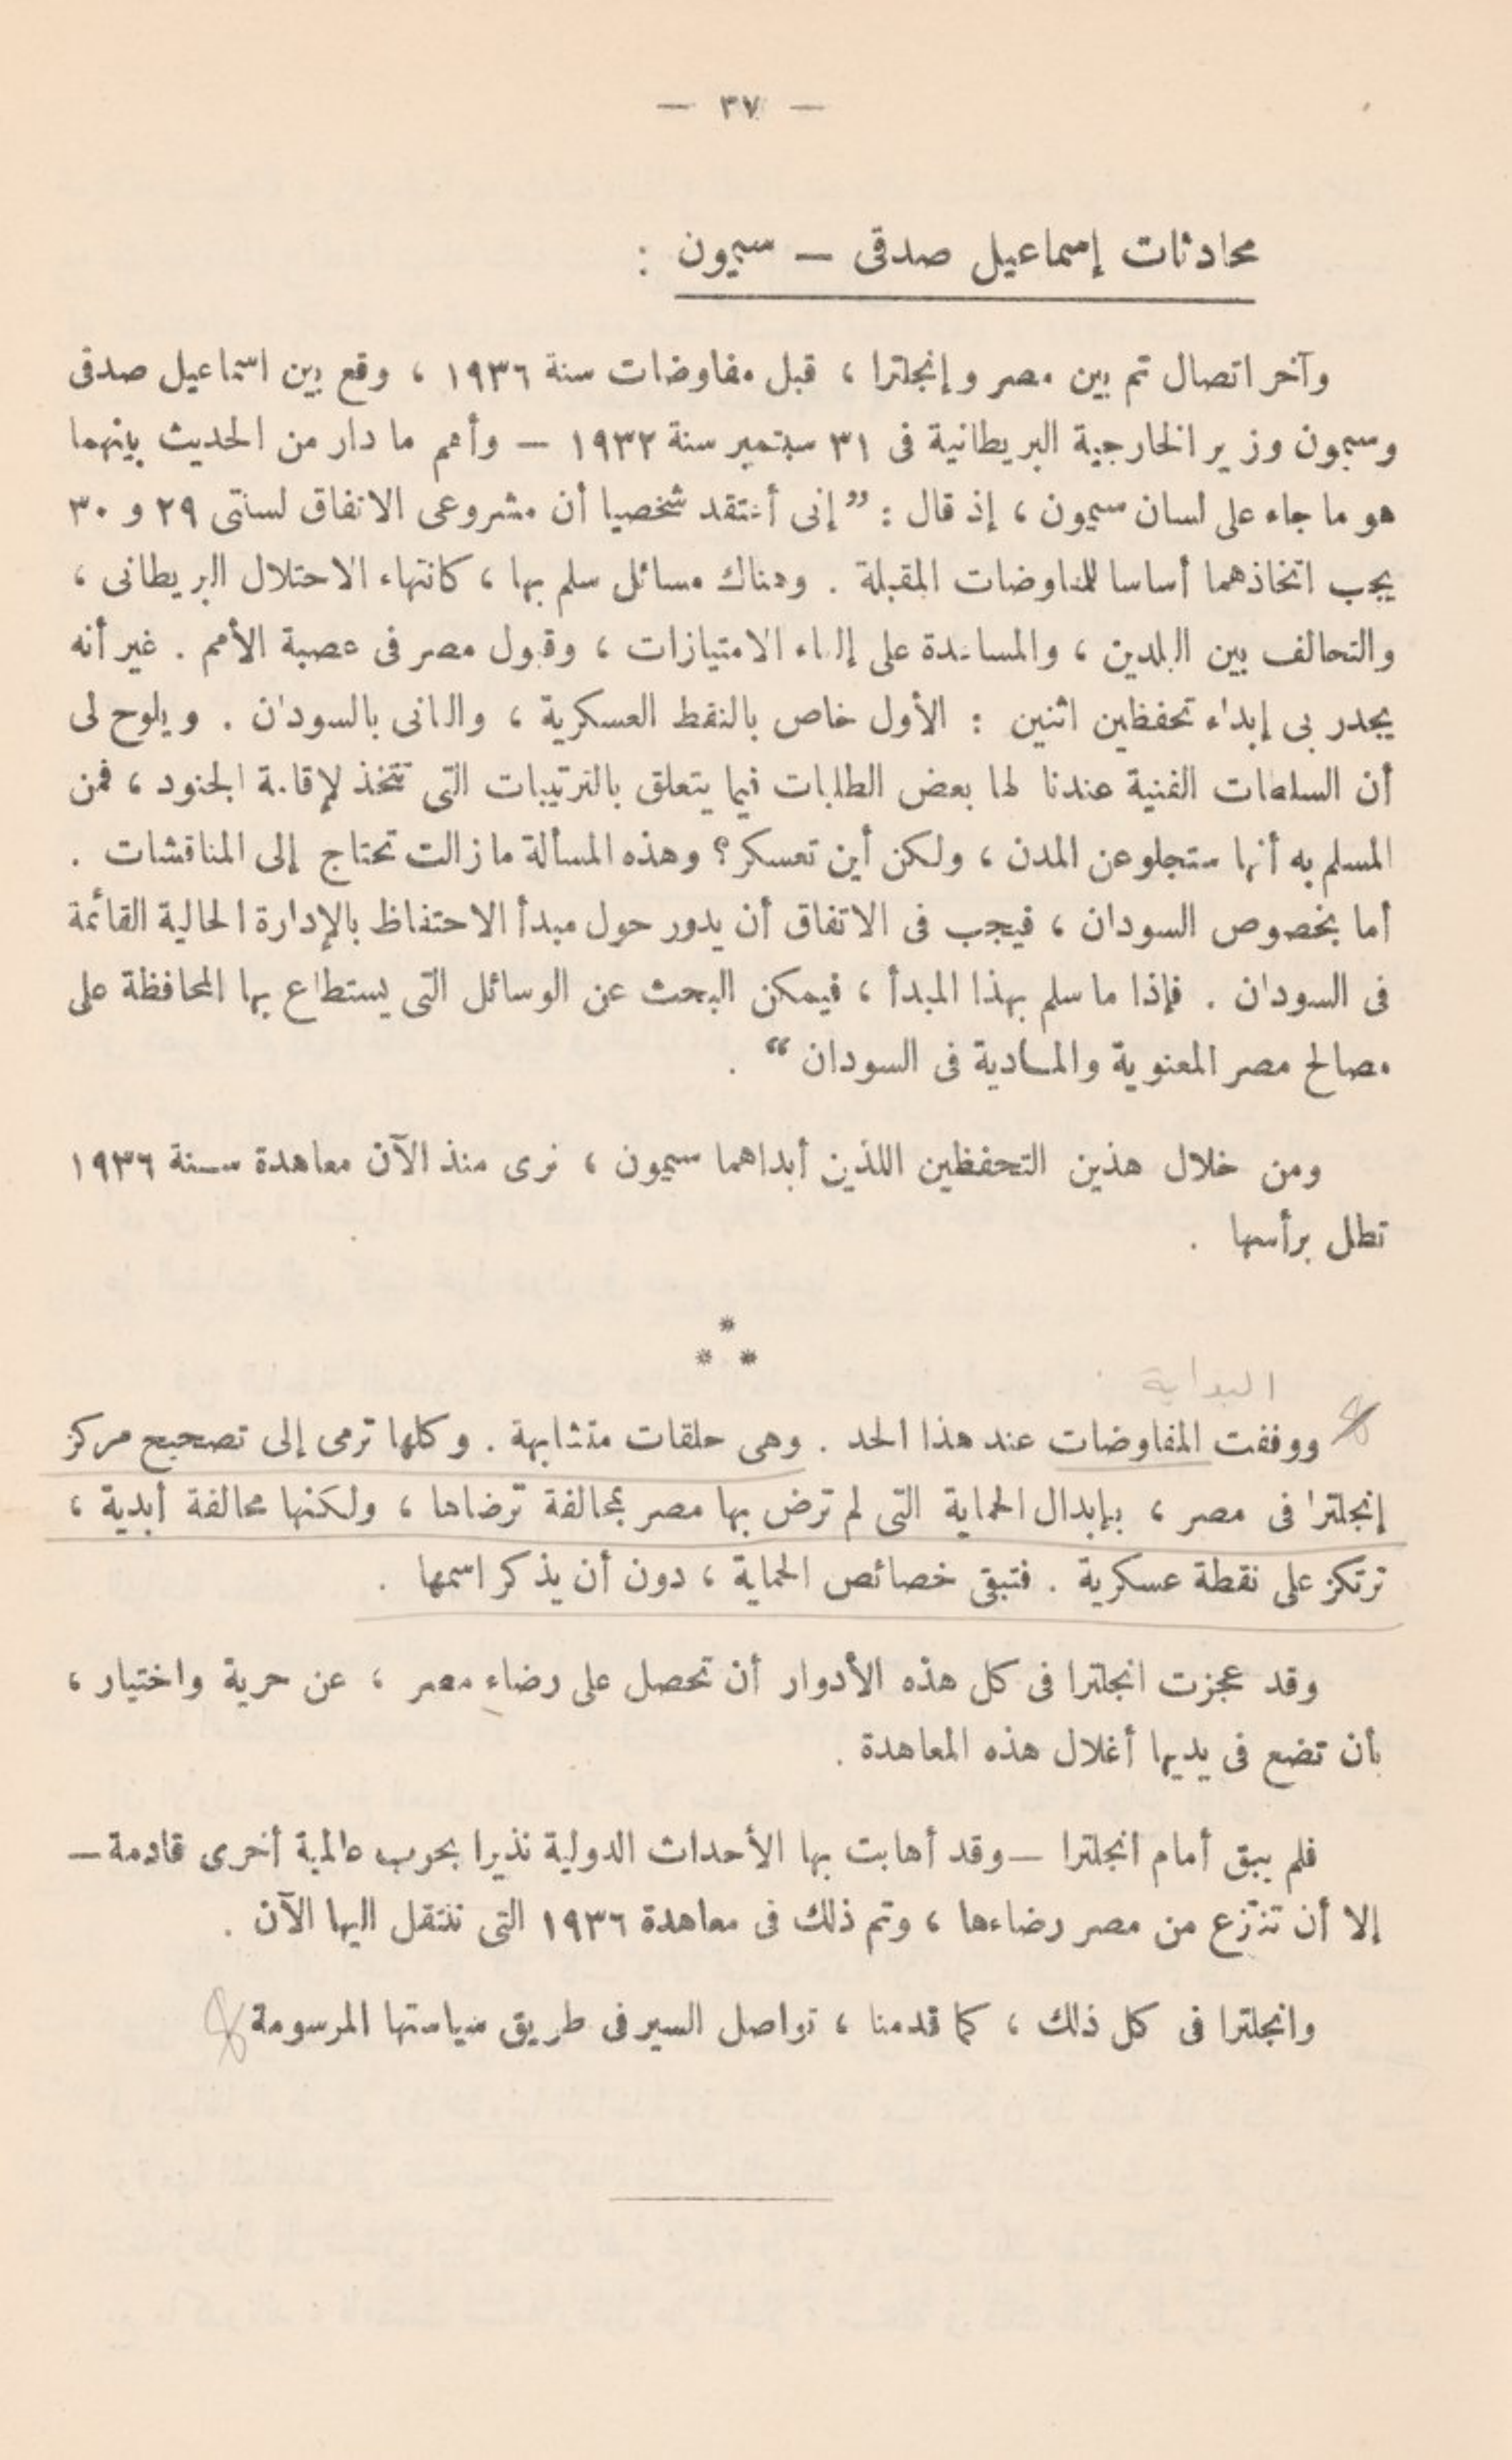 — ٣٧ —
محادثات إسماعيل صدقى — سيمون :
وآخر اتصال تم بين مصر وإنجلترا ، قبل مفاوضات سنة ١٩٣٦ ، وقع بين اسماعيل صدقى
وسيمون وزير الخارجية البريطانية فى ٣١ سبتمبر سنة ١٩٣٢ — وأهم ما دار من الحديث بينهما
هو ما جاء على لسان سيمون ، إذ قال : ” إنى أعتقد شخصيا أن مشروعى الاتفاق لسنتى ٢٩ و ٣٠
يجب اتخاذهما أساسا للمفاوضات المقبلة . وهناك مسائل سلم بها ، كانتهاء الاحتلال البريطانى ،
والتحالف بين البلدين ، والمساعدة على إلغاء الامتيازات ، وقبول مصر فى عصبة الأمم . غير أنه
يجدر بى إبداء تحفظين اثنين : الأول خاص بالنقط العسكرية ، والثانى بالسودان . ويلوح لى
أن السلطات الفنية عندنا لها بعض الطلبات فيما يتعلق بالترتيبات التى تتخذ لإقامة الجنود ، فمن
المسلم به أنها ستجلو عن المدن ، ولكن أين تعسكر؟ وهذه المسألة ما زالت تحتاج إلى المناقشات .
أما بخصوص السودان ، فيجب فى الاتفاق أن يدور حول مبدأ الاحتفاظ بالإدارة الحالية القائمة
فى السودان . فإذا ما سلم بهذا المبدأ ، فيمكن البحث عن الوسائل التى يستطاع بها المحافظة على
مصالح مصر المعنوية والمادية فى السودان “ .
ومن خلال هذين التحفظين اللذين أبداهما سيمون ، نرى منذ الآن معاهدة سنة ١٩٣٦
تطل برأسها .
*
* *
البداية
ووقفت المفاوضات عند هذا الحد . وهى حلقات متشابهة . وكلها ترمى إلى تصحيح مركز
إنجلترا فى مصر ، بإبدال الحماية التى لم ترض بها مصر بمحالفة ترضاها ، ولكنها محالفة أبدية ،
ترتكز على نقطة عسكرية . فتبقى خصائص الحماية ، دون أن يذكر اسمها .
وقد عجزت انجلترا فى كل هذه الأدوار أن تحصل على رضاء مصر ، عن حرية واختيار ،
بأن تضع فى يديها أغلال هذه المعاهدة .
فلم يبق أمام انجلترا — وقد أهابت بها الأحداث الدولية نذيرا بحرب عالمية أخرى قادمة —
إلا أن تنتزع من مصر رضاءها ، وتم ذلك فى معاهدة ١٩٣٦ التى ننتقل اليها الآن .
وانجلترا فى كل ذلك ، كما قدمنا ، تواصل السير فى طريق سياستها المرسومة